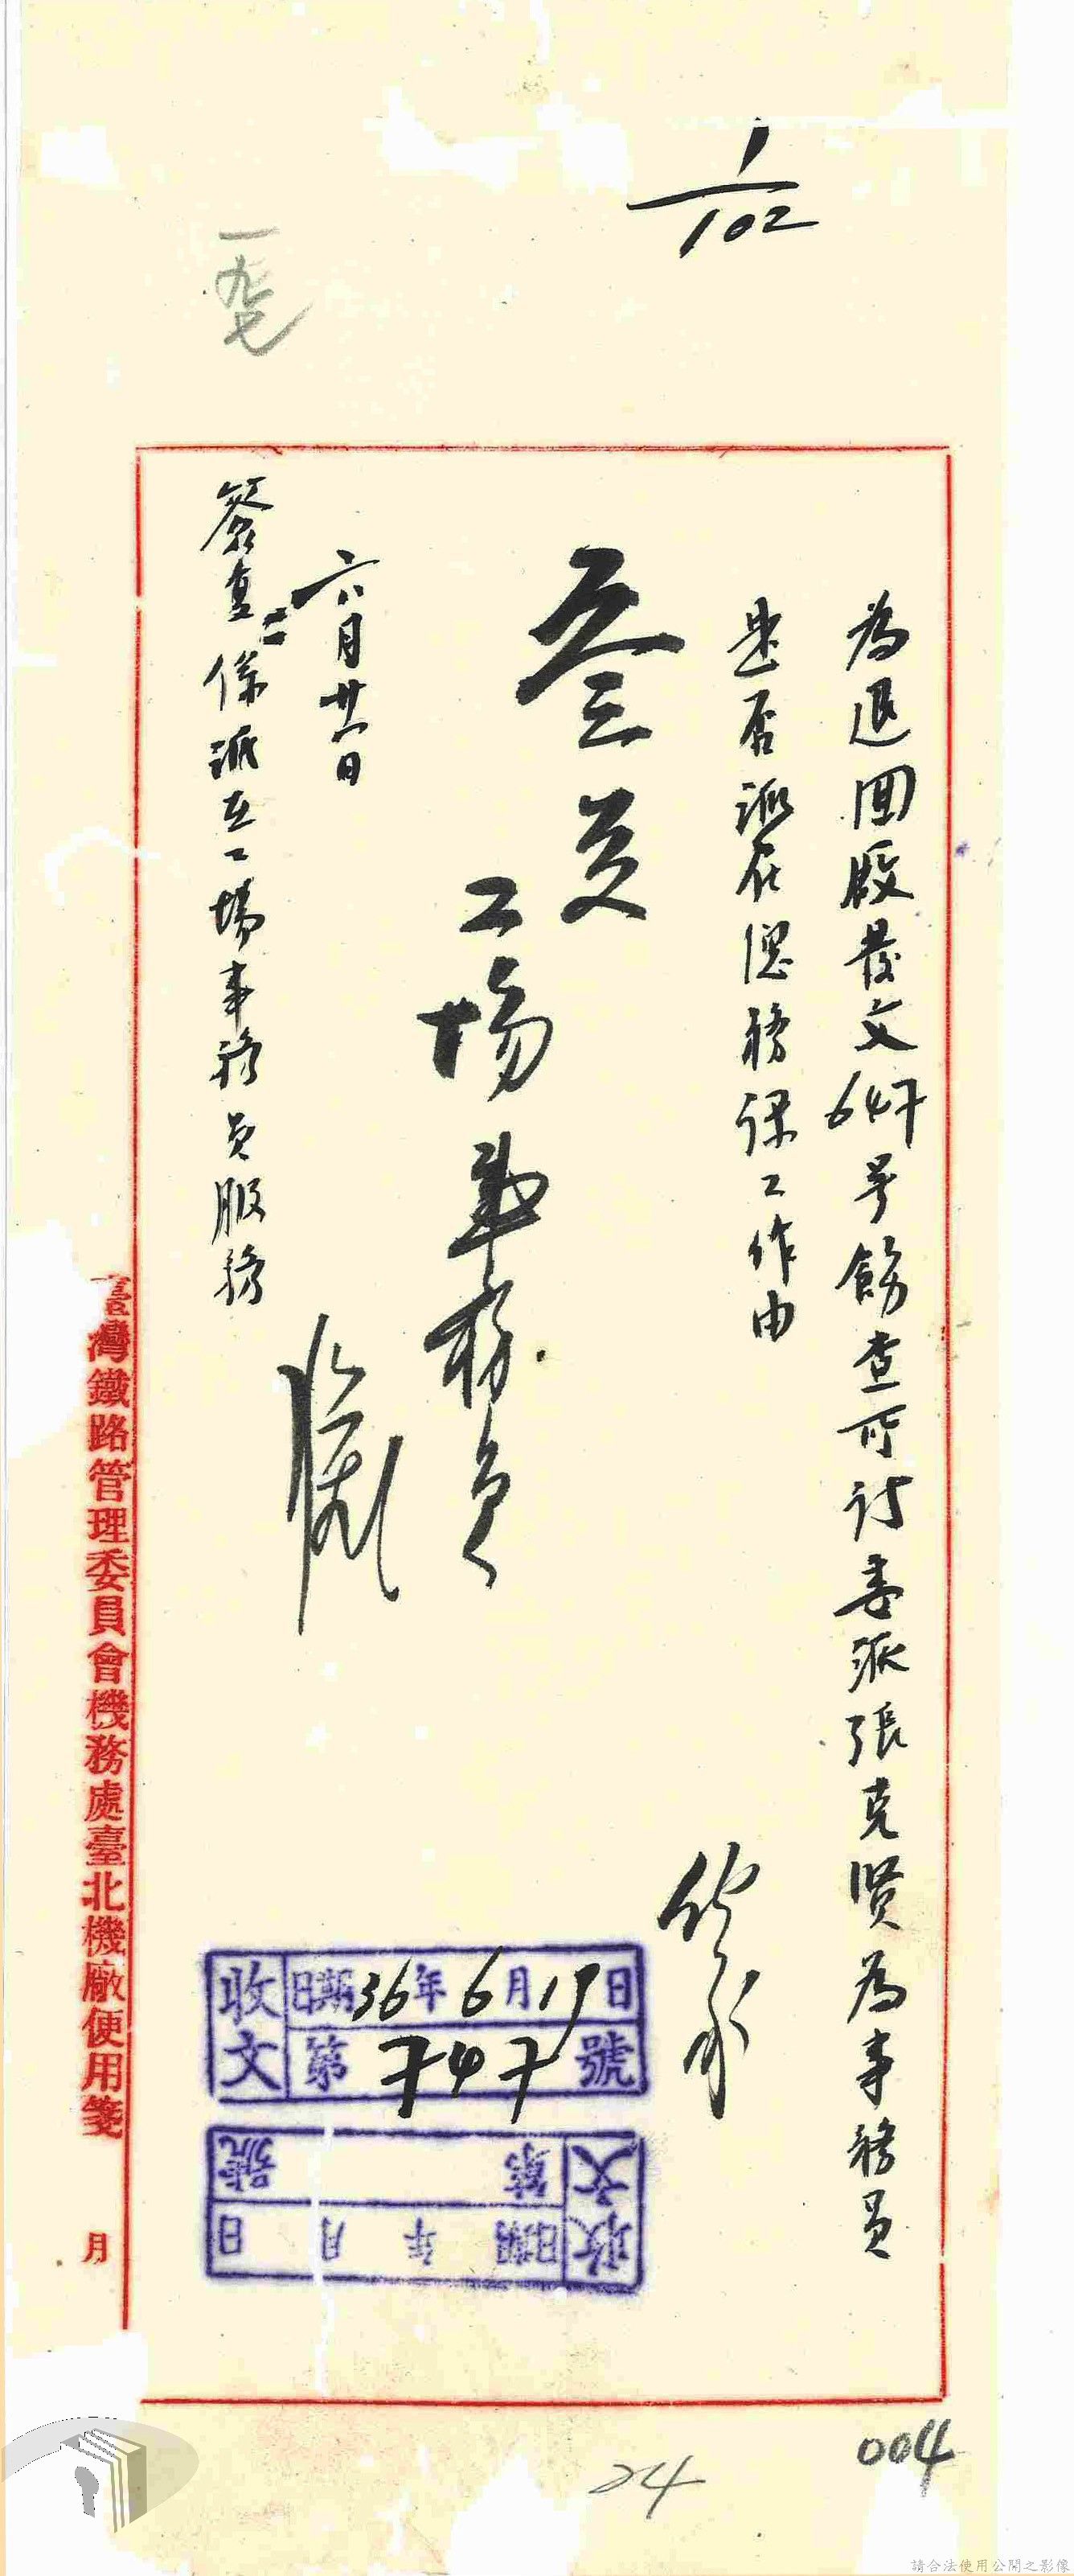 1/102
一九七
為退回廠發文647号飭查所討委派張克賢為事務員
是否派在總務課工作由
工場事務員
六月廿一日
簽复:係派在工場事務員服務
收文 日期36年6月19日
第747號
收文 日期 年 月 日
第 號
臺灣鐵路管理委員會機務處臺北機廠便用箋
月
004
24
請合法使用公開之影像